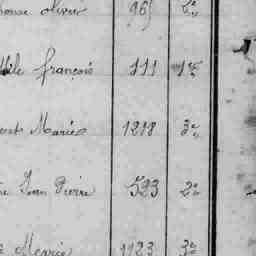 olivier 96 2e
françois 111 1re
Marie 1218 3e
Jean Pierre 593 2e
Marie 1123 3e